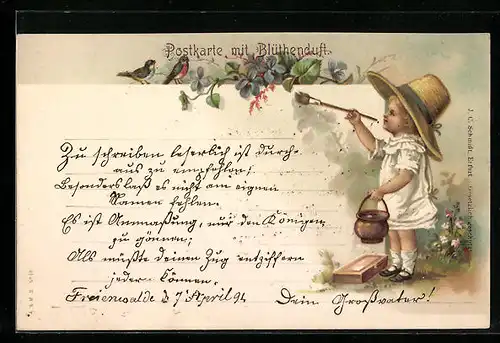 Postkarte mit Blüthenduft.
Zu schreiben leserlich ist durch-
aus zu empfehlen!
Besonders laß es nicht am eignen
Namen fehlen.
Es ist Anmaßung, nur den Königen
zu gönnen,
Als müßte deinen Zug entziffern
jeder können.
Freienwalde d 7 April 94
Dein Großvater!
J. C. Schmidt, Erfurt.